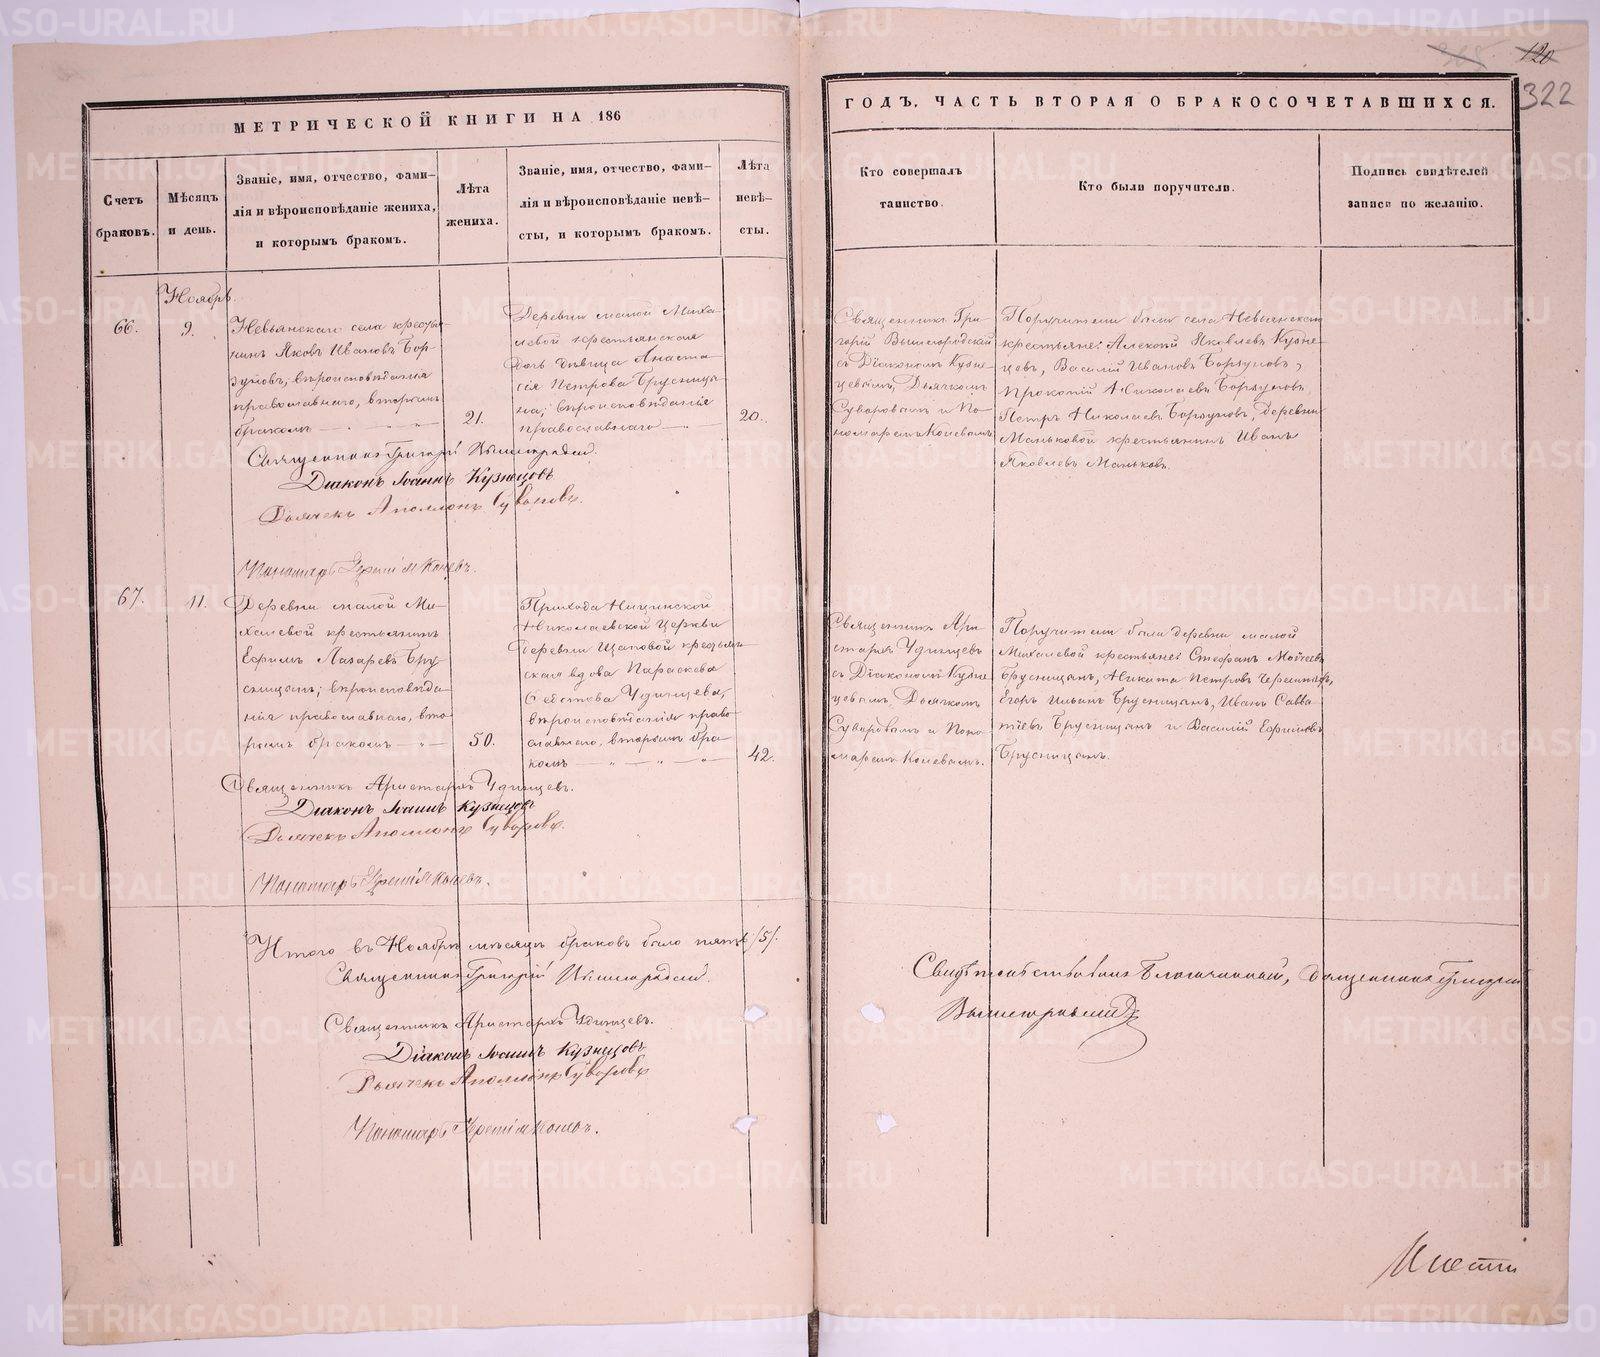 120
322
МЕТРИЧЕСКОЙ КНИГИ НА 186
ГОДЪ, ЧАСТЬ ВТОРАЯ О БРАКОСОЧЕТАВШИХСЯ.
Счетъ
браковъ.
Мѣсяцъ
и день.
Званіе, имя, отчество, фами-
лія и вѣроисповѣданіе жениха,
и которымъ бракомъ.
Лѣта
жениха.
Званіе, имя, отчество, фами-
лія и вѣроисповѣданіе невѣ-
сты, и которымъ бракомъ.
Лѣта
невѣ-
сты.
Кто совершалъ
таинство.
Кто были поручители.
Подпись свидѣтелей
записи по желанію.
Ноябрь.
66.
9.
Невьянскаго села крестья-
нинъ Яковъ Ивановъ Бор-
зуновъ, вѣроисповѣданія
православнаго, вторымъ
бракомъ
21.
Деревни малой Миха-
левой крестьянская
дочь дѣвица Анаста-
сія Петрова Брусницы-
на, вѣроисповѣданія
православнаго
20.
Священникъ Гри-
горій Вышгородскій
съ Діакономъ Кузне-
цовымъ, Дьячкомъ
Суворовымъ и По-
номаремъ Коневымъ
Поручители были села Невьянскаго
крестьяне: Алексѣй Яковлевъ Кузне-
цовъ, Василій Ивановъ Борзуновъ,
Прокопій Николаевъ Борзуновъ
Петръ Николаевъ Борзуновъ, деревни
Маньковой крестьянинъ Иванъ
Яковлевъ Маньковъ.
Священникъ Григорій Вышгородскій.
Діаконъ Іоаннъ Кузнецовъ
Дьячекъ Аполлонъ Суворовъ.
Пономарь Коневъ.
67.
11.
Деревни малой Ми-
халевой крестьянинъ
Ефимъ Лазаревъ Бру-
сницынъ; вѣроисповѣда-
нія православнаго, вто-
рымъ бракомъ
50.
Прихода Ницинской
Николаевской Церкви
деревни Щаповой крестьян-
ская вдова Параскева
Удинцева,
вѣроисповѣданія право-
славнаго, вторымъ бра-
комъ
42.
Священникъ Ари-
стархъ Удинцевъ
съ Діакономъ Кузне-
цовымъ, Дьячкомъ
Суворовымъ и Поно-
маремъ Коневымъ.
Поручители были деревни малой
Михалевой крестьяне: Стефанъ Моисеевъ
Брусницынъ, Никита Петровъ
Егоръ Ильинъ Брусницынъ, Иванъ Савва-
тіевъ Брусницынъ и Василій Ефимовъ
Брусницынъ.
Священникъ Аристархъ Удинцевъ.
Діаконъ Іоаннъ Кузнецовъ
Дьячекъ Аполлонъ Суворовъ.
Пономарь Коневъ.
Итого въ Ноябрѣ мѣсяцѣ браковъ было пять /5/.
Священникъ Григорій Вышгородскій.
Священникъ Аристархъ Удинцевъ.
Діаконъ Іоаннъ Кузнецовъ
Дьячекъ Аполлонъ Суворовъ
Пономарь Коневъ.
Свидѣтельствовалъ Благочинный, Священникъ Григорій
Вышгородскій
METRIKI.GASO-URAL.RU